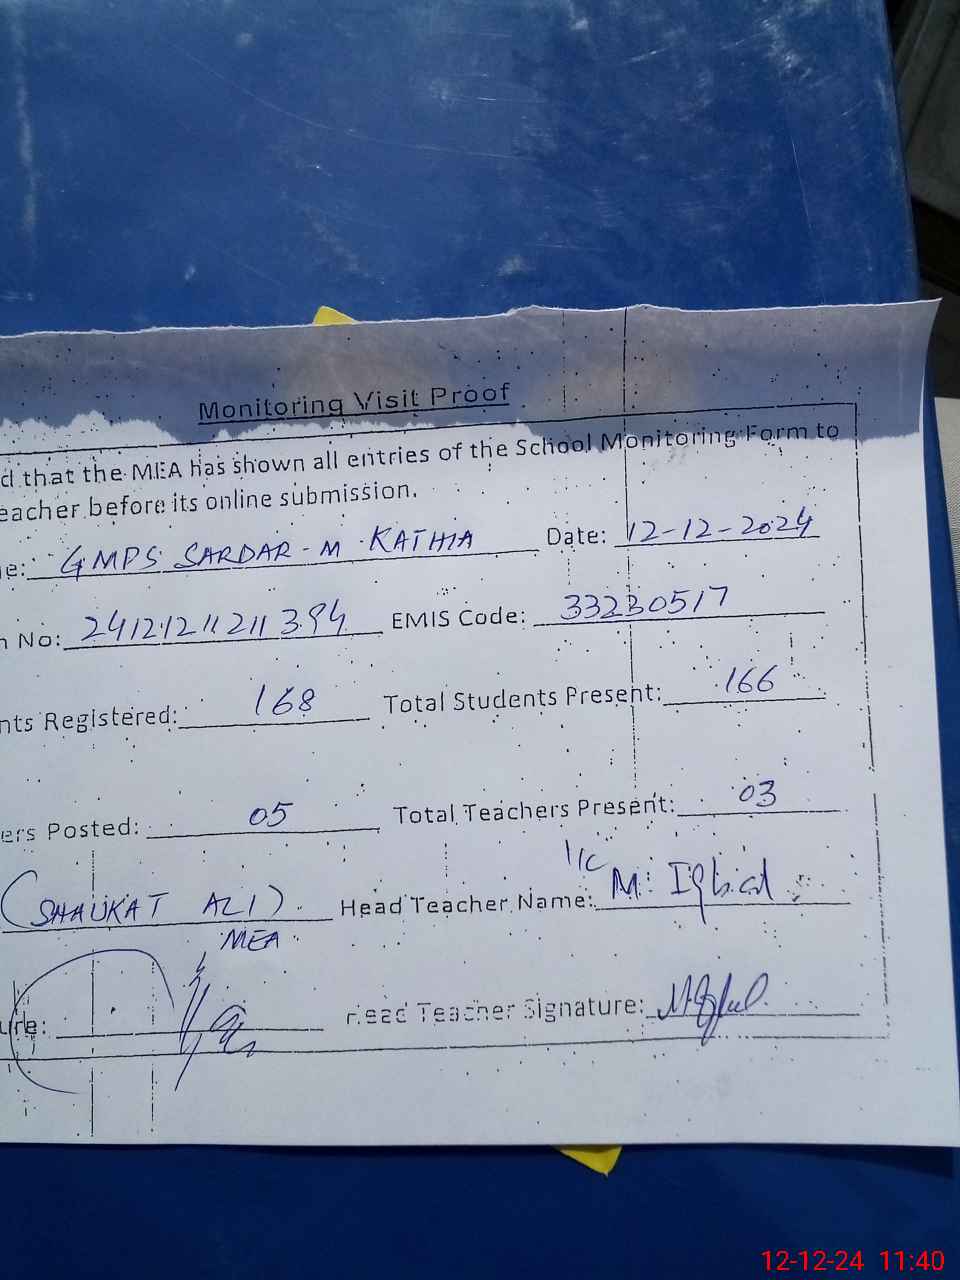 Monitoring Visit Proof
d that the MEA has shown all entries of the School Monitoring Form to
eacher before its online submission.
e: GMPS SARDAR-M KATHIA Date: 12-12-2024
n No: 24121211211394 EMIS Code: 33230517
nts Registered: 168 Total Students Present: 166
ers Posted: 05 Total Teachers Present: 03
(SHAUKAT ALI) Head Teacher Name: I/C M. Iqbal
MEA
ure: Head Teacher Signature:
12-12-24 11:40